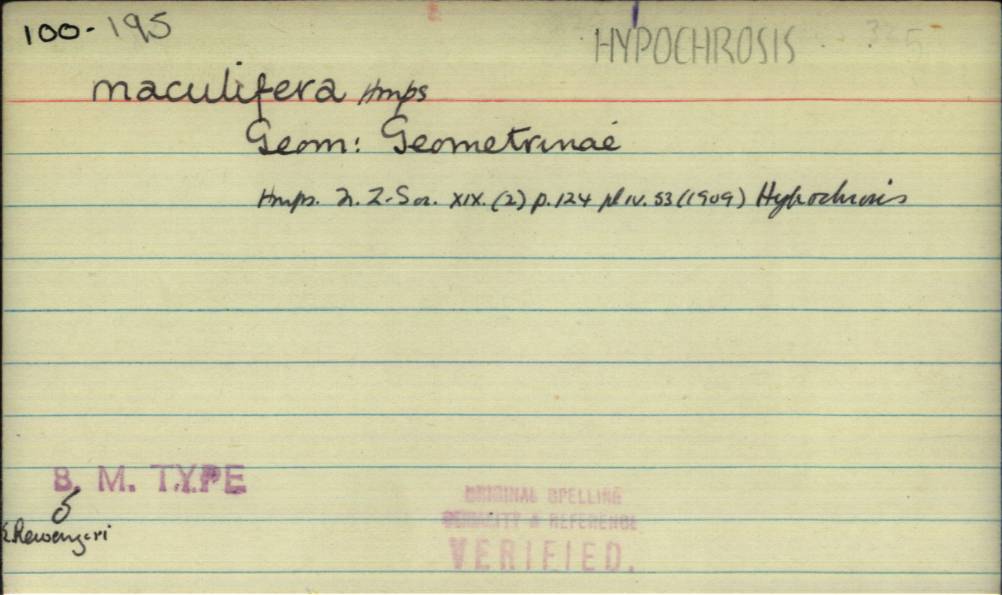 100-195
HYPOCHROSIS
maculifera Hmps
Geom: Geometrinae
Hmps. Z. Soc. XIX. (2) p. 124 pl IV. 53 (1909) Hypochrosis
B. M. TYPE
♂
E Rewenzori
ORIGINAL SPELLING
HOMONYMITY & REFERENCE
VERIFIED.